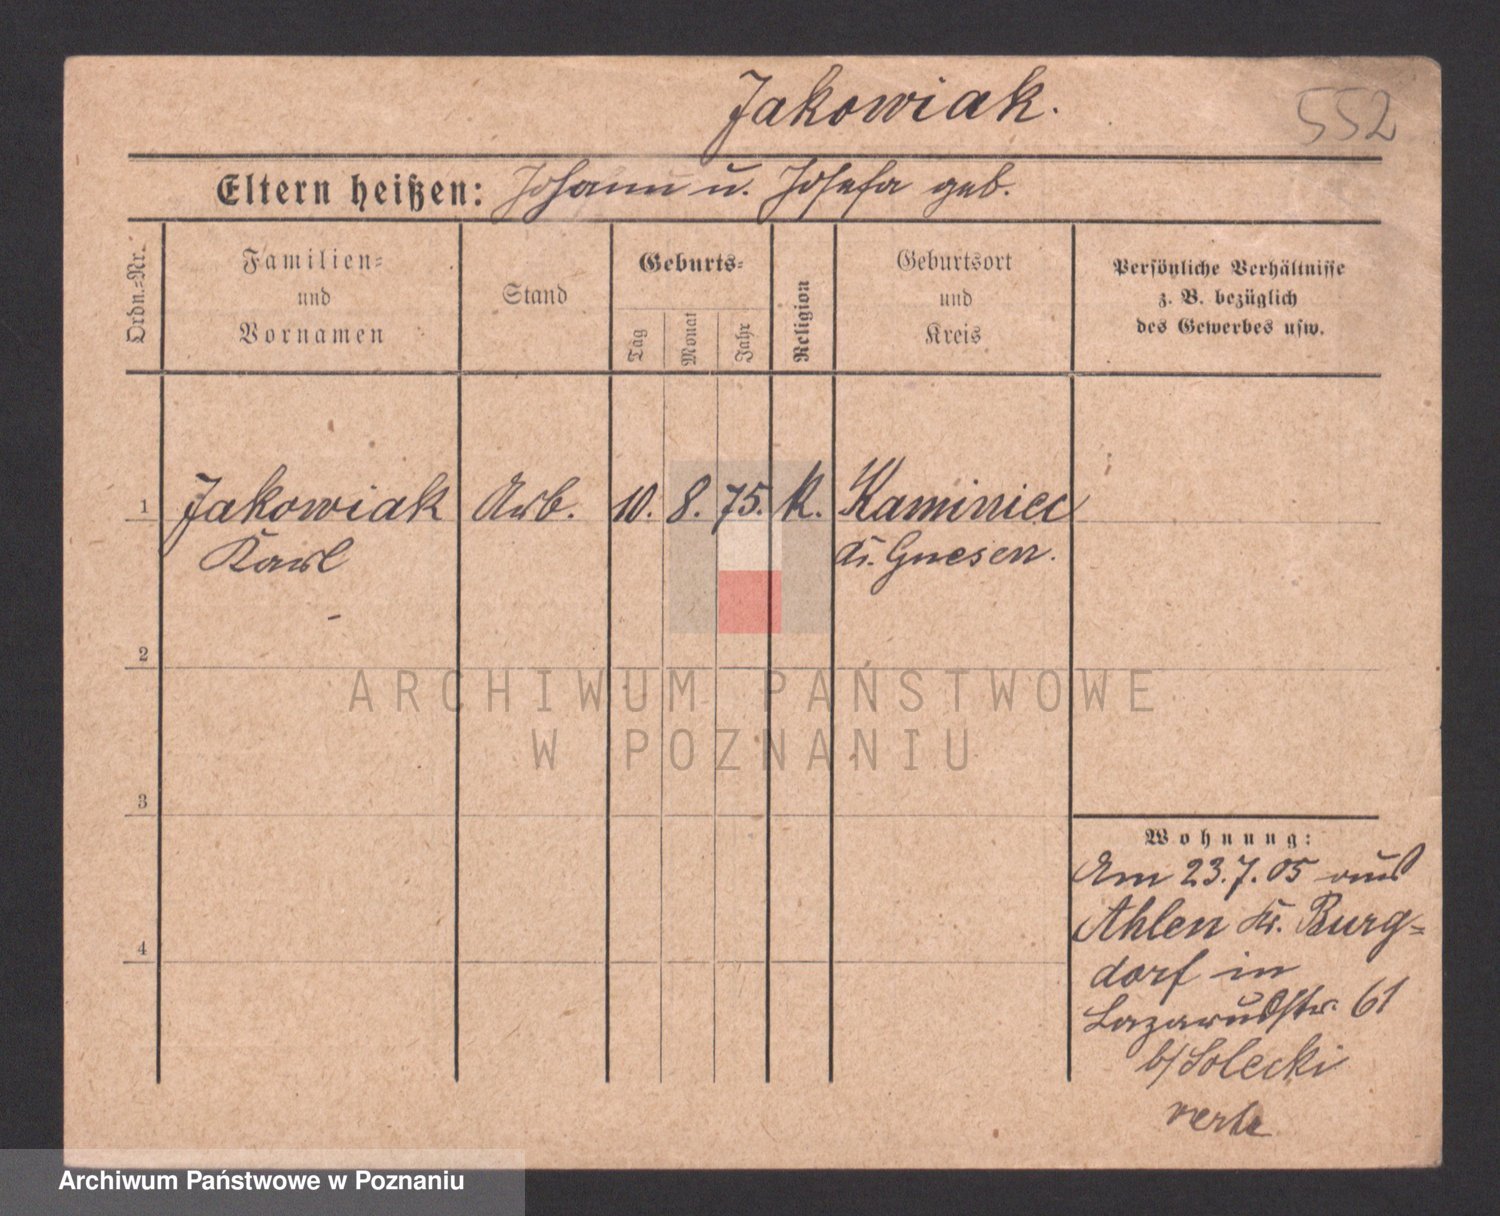 Jakowiak.
552
Eltern heißen: Johann u. Josefa geb.
Ordn.-Nr.
Familien-
und
Vornamen
Stand
Geburts-
Tag
Monat
Jahr
Religion
Geburtsort
und
Kreis
Persönliche Verhältnisse
z. B. bezüglich
des Gewerbes usw.
1 Jakowiak Arb. 10. 8. 75. k. Kaminiec
Karl Kr. Gnesen.
2
ARCHIWUM PAŃSTWOWE
W POZNANIU
3
Wohnung:
Am 23.7.05 aus
Ahlen Kr. Burg-
4
dorf in
Lazarusstr. 61
b/Solecki
Archiwum Państwowe w Poznaniu